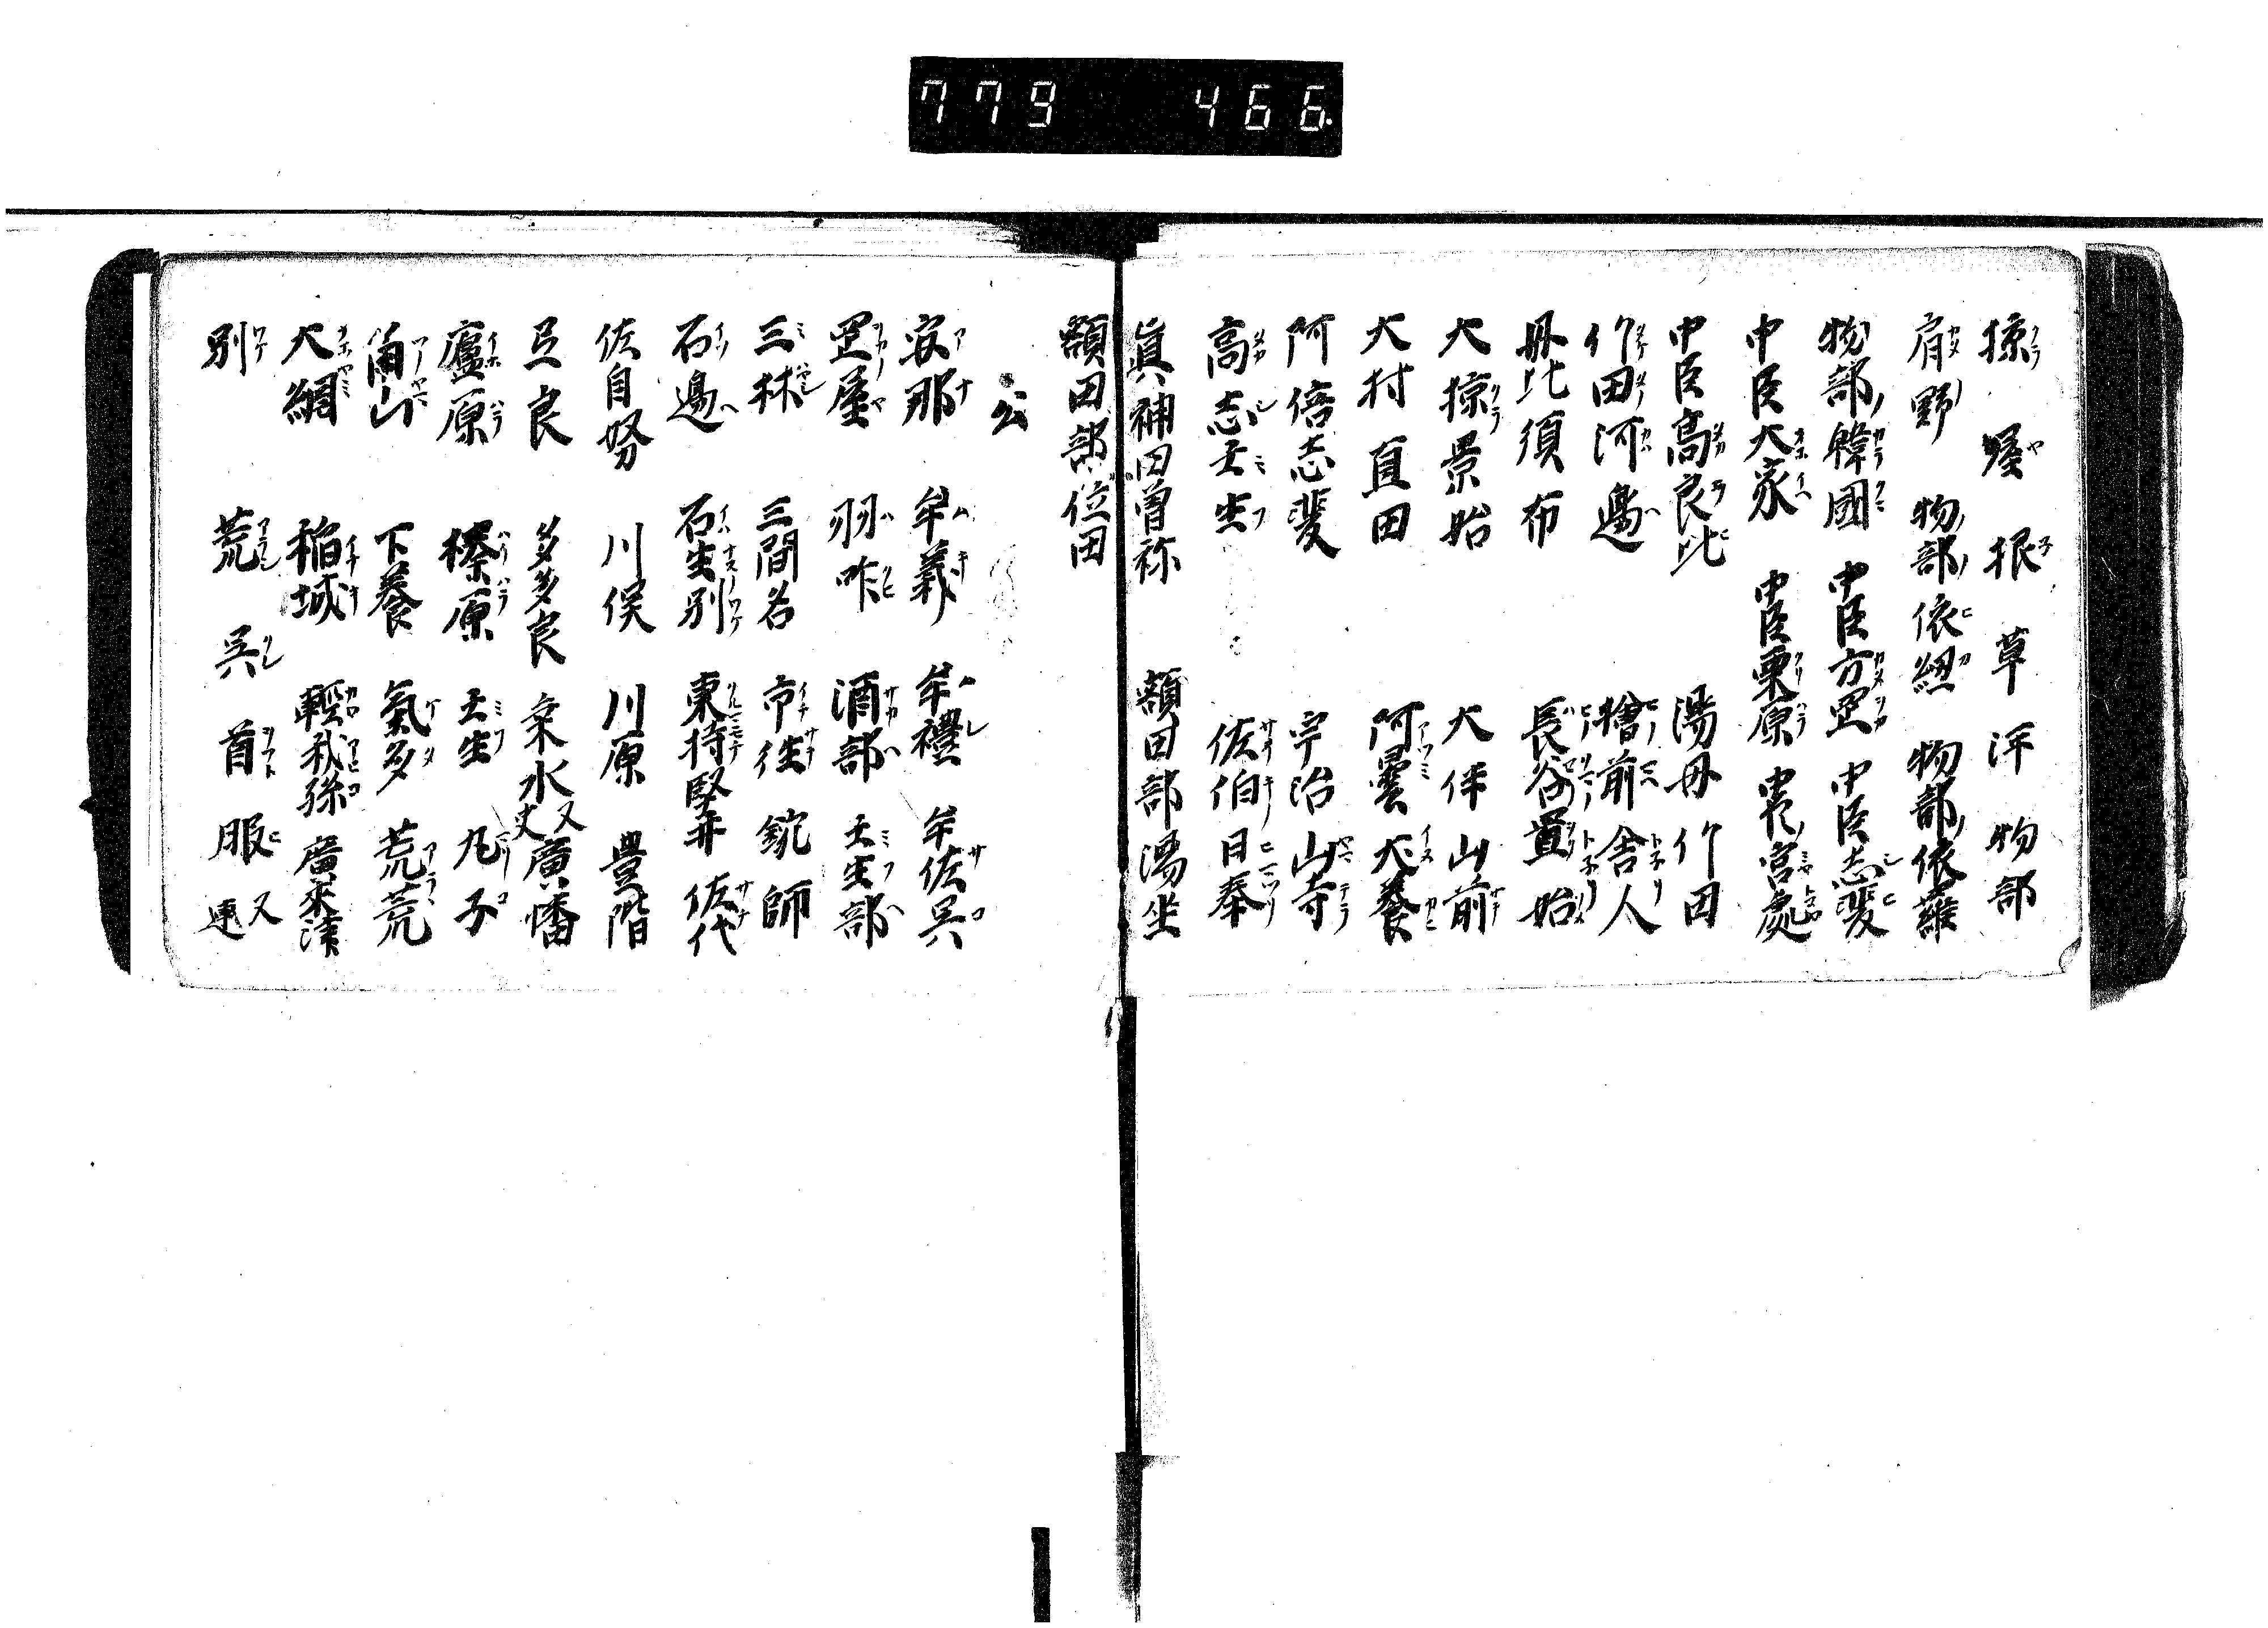 779 466.
掠 屋 根 草 汗 物部
肩野 物部依紐 物部依羅
物部韓國 中臣方岳 中臣志斐
中臣大家 中臣栗原 中臣宮處
中臣高良比 湯母竹田
竹田河邊 檜前舎人
丹比須布 長谷置始
大掠景始 大伴山前
大村直田 阿曇犬養
阿倍志斐 宇治山寺
高志壬生 佐伯日奉
眞神田曽祢 額田部湯坐
額田部位田
公
安那 牟義 牟禮 牟佐呉
罡屋 羽咋 酒部 壬生部
三林 三間名 市往 鋺師
石邉 石生別 東持 堅井 佐代
佐自努 川俣 川原 豊階
豆良 多多良 粂水 又丈 廣幡
廬原 榛原 壬生 凡子
角山 下養 氣多 荒荒
大網 稲城 輕我孫 廣来津
別 荒 呉 首 服 又連